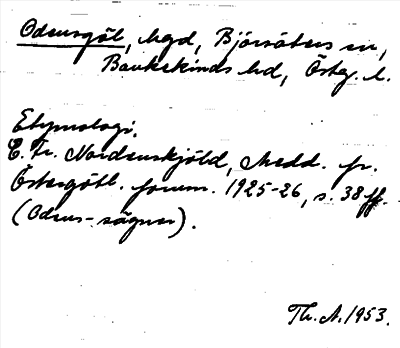 Odensgöl, högd, Björsäters sn,
Bankekinds hd, Östg. l.
Etymologi.
C. Fr. Nordenskjöld, Medd. fr.
Östergötl. fornm. 1925-26, s. 38 ff.
(Odens-sägner).
Th. A. 1953.